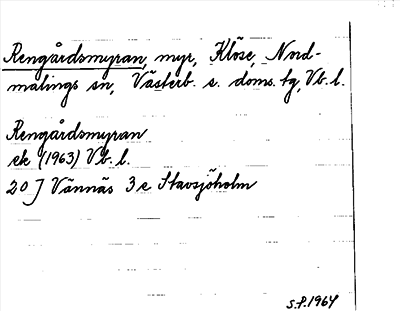 Rengårdsmyran, myr, Klöse, Nord-
malings sn, Västerb. s. doms. tg, Vb. l.
Rengårdsmyran
ek (1963) Vb. l.
20 J Vännäs 3 e Stavsjöholm
S.P. 1964